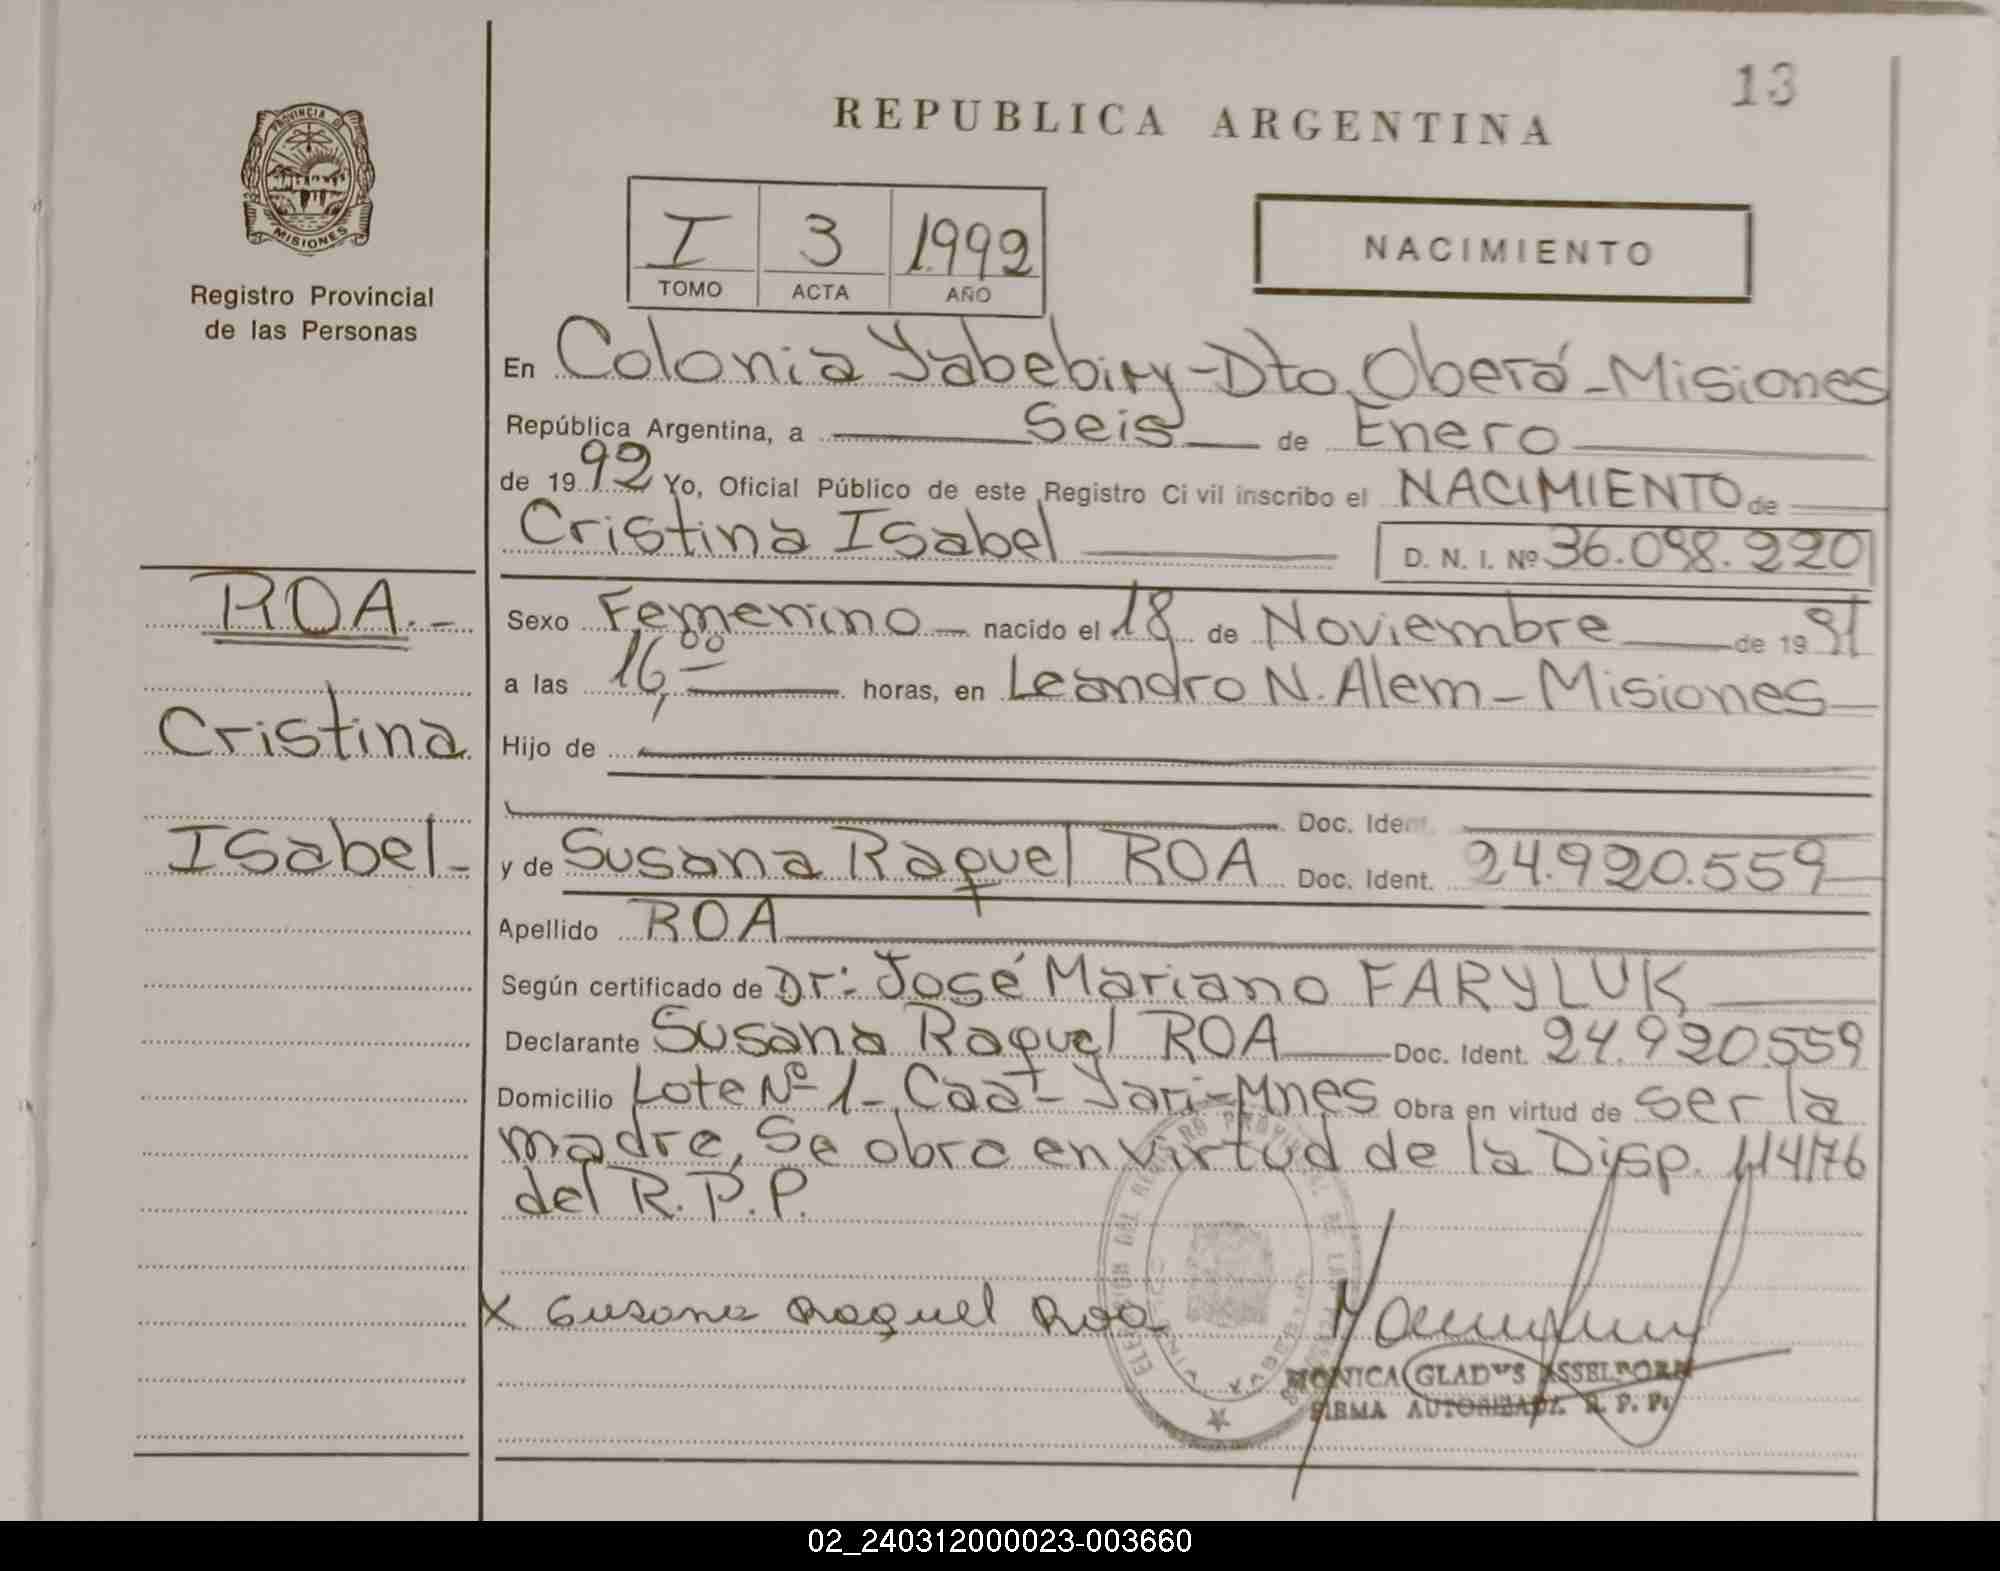 13
REPUBLICA ARGENTINA
PROVINCIA DE
MISIONES
Registro Provincial
de las Personas
I 3 1992
TOMO ACTA AÑO
NACIMIENTO
En Colonia Yabebiry-Dto. Oberá-Misiones
República Argentina, a Seis de Enero
de 1992 Yo, Oficial Público de este Registro Civil inscribo el NACIMIENTO de
Cristina Isabel D. N. I. Nº 36.098.220
ROA.-
Cristina
Isabel-
Sexo Femenino nacido el 18 de Noviembre de 1991
a las 16,00 horas, en Leandro N. Alem-Misiones
Hijo de
Doc. Ident.
y de Susana Raquel ROA Doc. Ident. 24.920.559
Apellido ROA
Según certificado de Dr: José Mariano FARYLUK
Declarante Susana Raquel ROA Doc. Ident. 24.920.559
Domicilio Lote Nº 1-Caá-Yari-Mnes Obra en virtud de ser la
madre, Se obra en virtud de la Disp. 114/76
del R.P.P.
X Susana Raquel Roa
MONICA GLADYS ASSELBORN
FIRMA AUTORIZADA R. P. P.
02_240312000023-003660